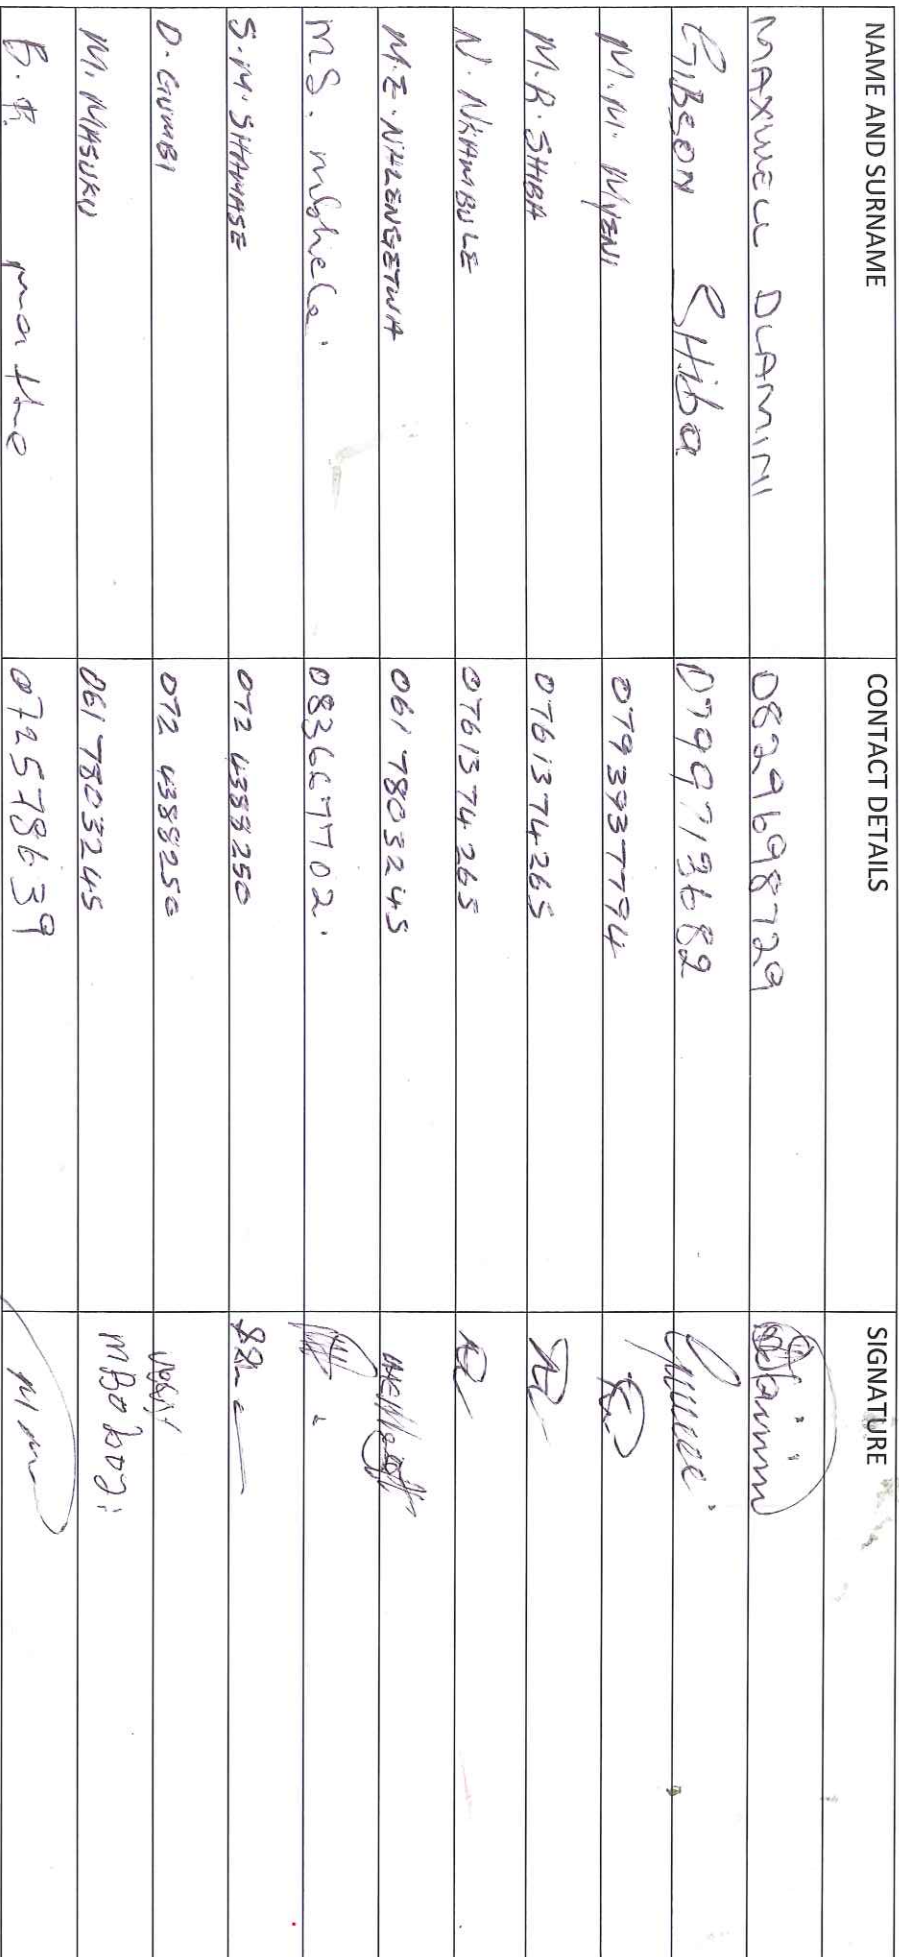 NAME AND SURNAME CONTACT DETAILS SIGNATURE
MAXWELL DLAMINI 0829698729
GIBEON SHiba 0799719682
M.M. MYENI 0793937794
M.R. SHIBA 0761374265
N. NKAMBULE 0761374265
M.E. NHLENGETWA 061 7803245
MS. mbhele. 0836677702.
S.M. SHAMASE 072 4388250
D. GUMBI 072 4388250
M. MASUKU 061 7803245
B. 072578639